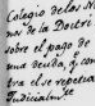 Colegio de los Ni
nos de la Doctri
sobre el pago de
una deuda, q.e con
tra el se repetia
Judicialm.te